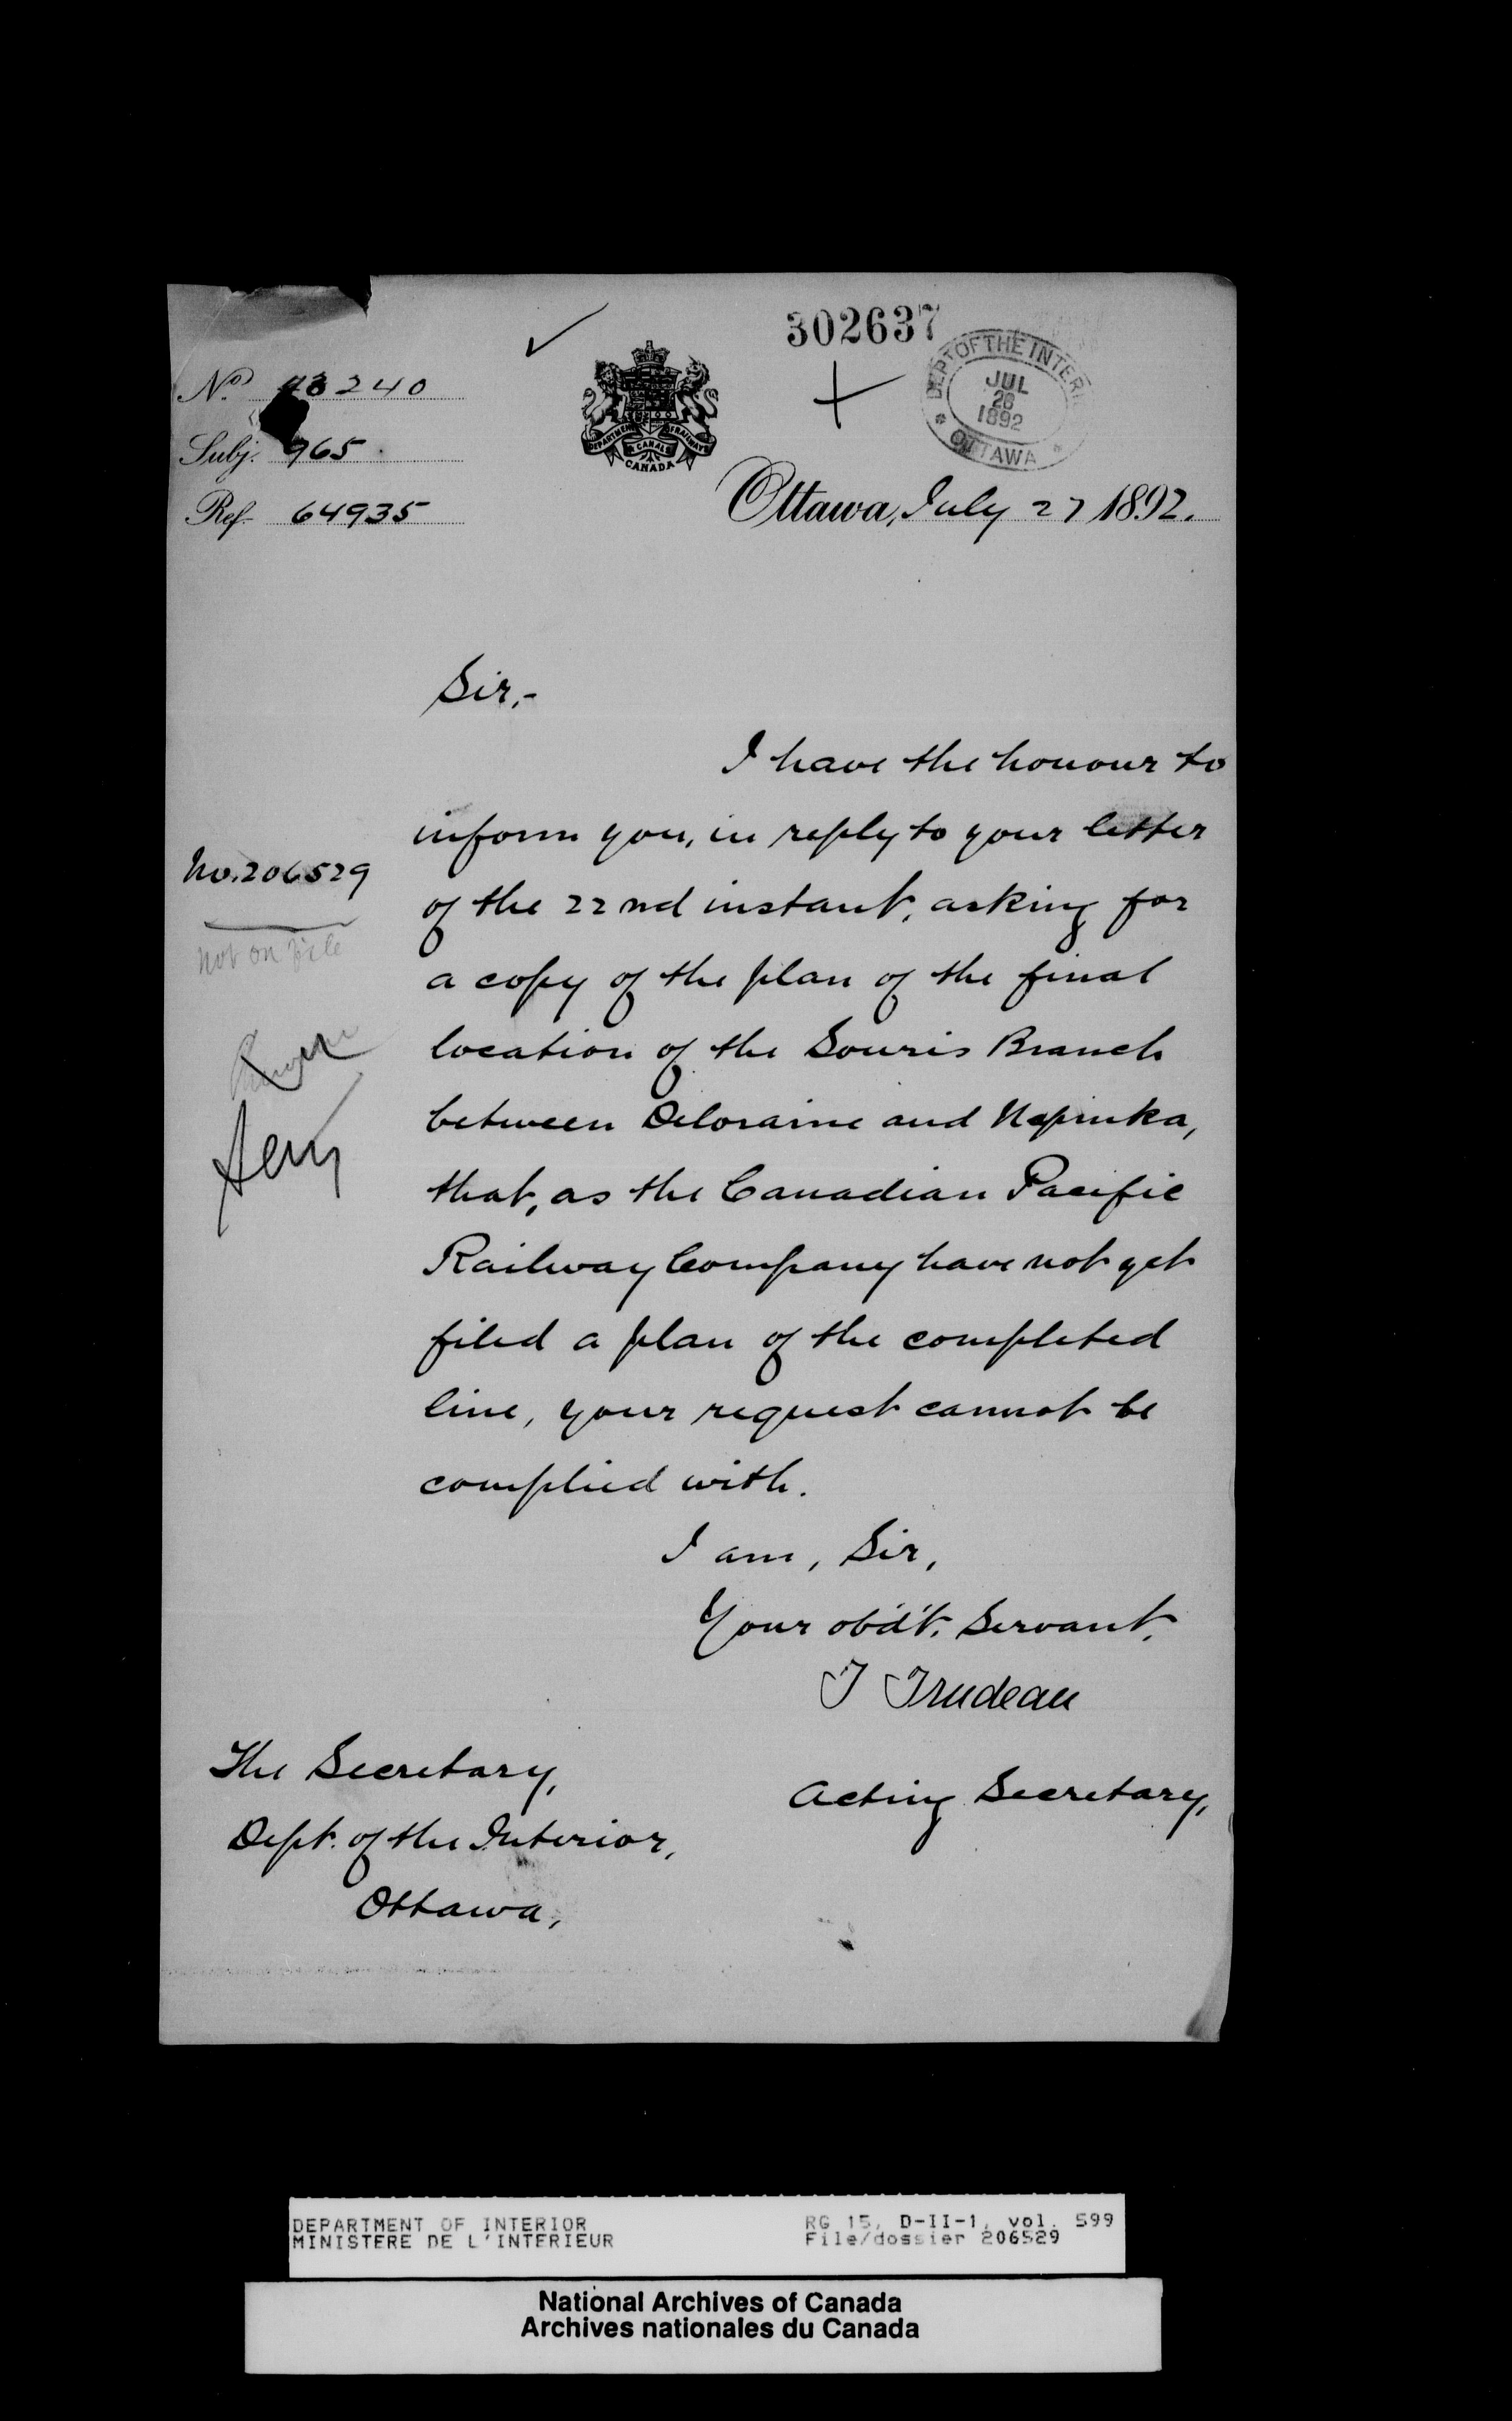 302637
DEPT OF THE INTERI
JUL
28
1892
OTTAWA
No. 43240
Subj. 965.
Ref. 64935
DEPARTMENT OF RAILWAYS
& CANALS
CANADA
Ottawa, July 27 1892.
Sir,-
I have the honour to
inform you, in reply to your letter
No. 206529
of the 22nd instant, asking for
not on file
a copy of the plan of the final
location of the Souris Branch
between Deloraine and Napinka,
that, as the Canadian Pacific
Railway Company have not yet
filed a plan of the completed
line, your request cannot be
complied with.
I am, Sir,
Your obd't. Servant,
T Trudeau
Acting Secretary,
The Secretary,
Dept. of the Interior,
Ottawa,
DEPARTMENT OF INTERIOR
MINISTERE DE L'INTERIEUR
RG 15, D-II-1, vol. 599
File/dossier 206529
National Archives of Canada
Archives nationales du Canada